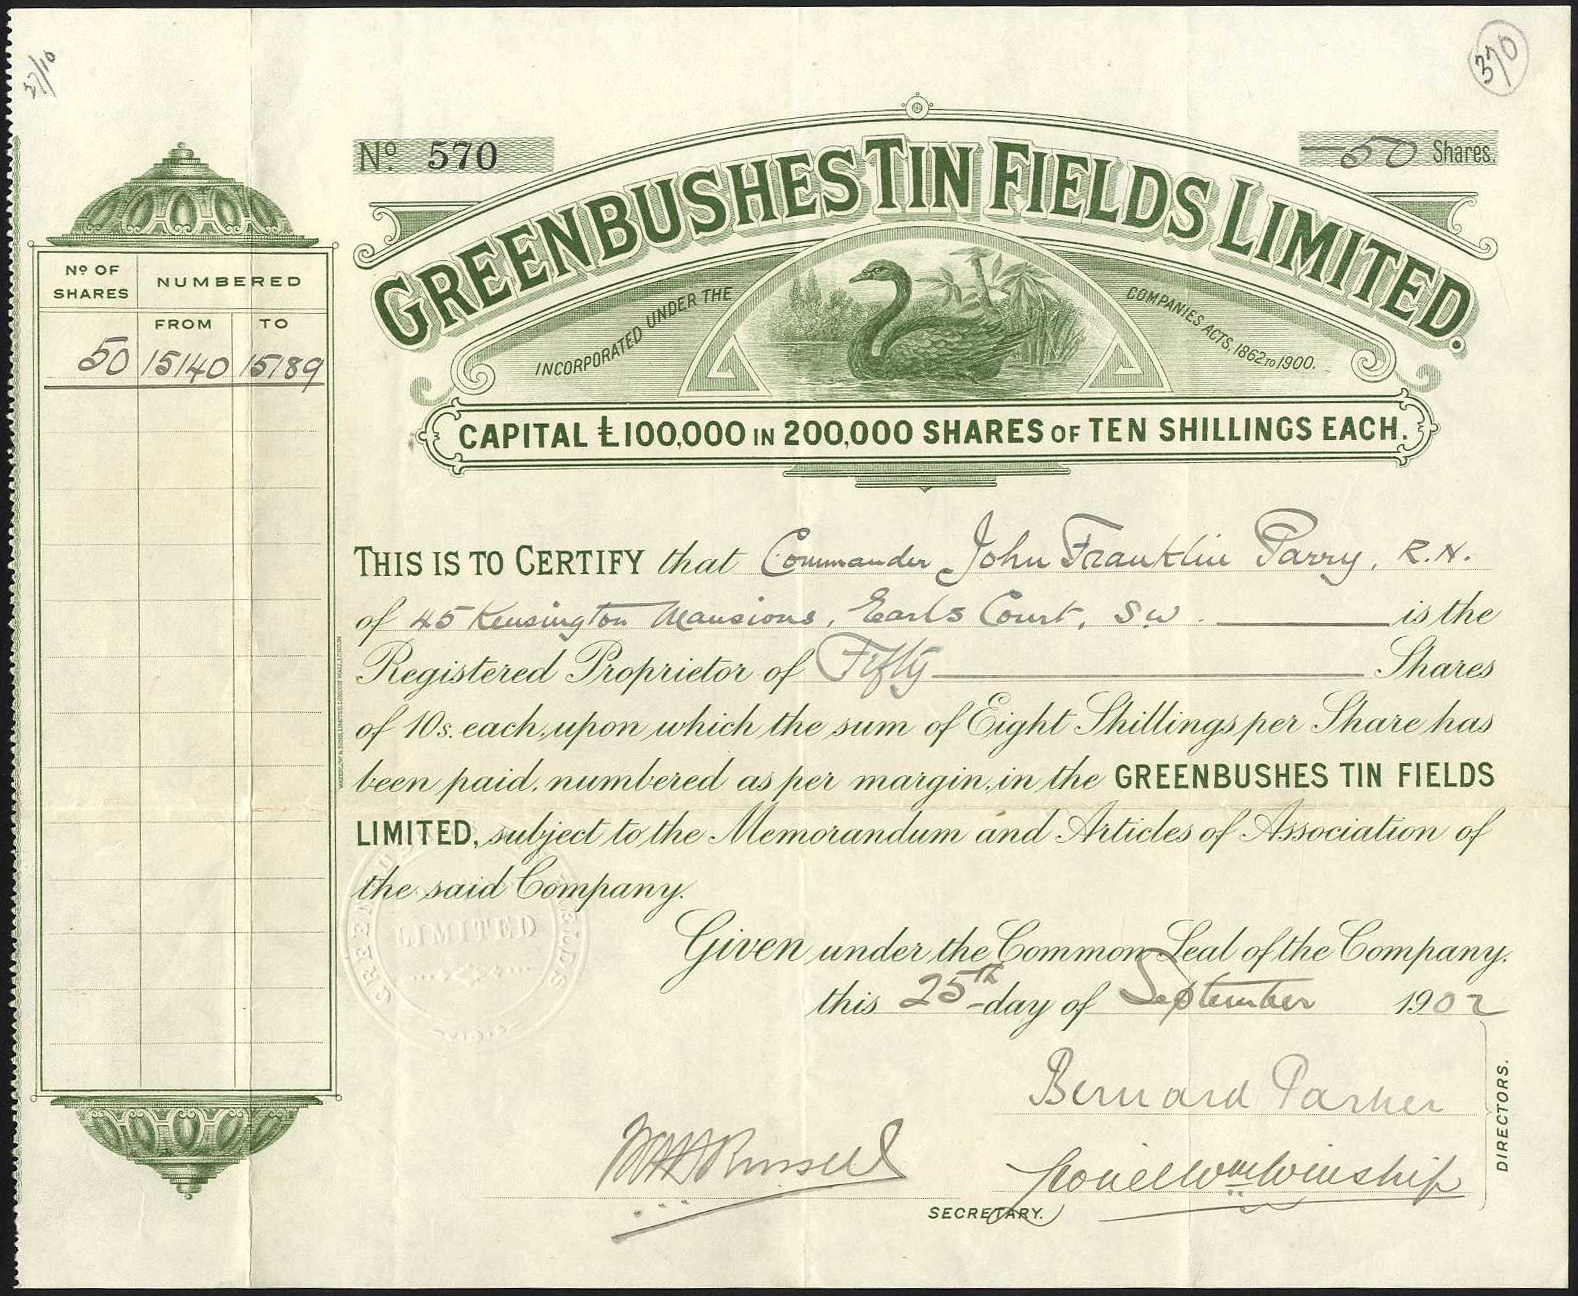 37/10
370
Nº 570
50 Shares.
GREENBUSHES TIN FIELDS LIMITED.
INCORPORATED UNDER THE COMPANIES ACTS, 1862 TO 1900.
CAPITAL £100,000 IN 200,000 SHARES OF TEN SHILLINGS EACH.
Nº OF SHARES NUMBERED
FROM TO
50 15140 15189
THIS IS TO CERTIFY that Commander John Franklin Parry, R.N.
of 45 Kensington Mansions, Earls Court, SW. is the
Registered Proprietor of Fifty Shares
of 10s. each, upon which the sum of Eight Shillings per Share has
been paid, numbered as per margin, in the GREENBUSHES TIN FIELDS
LIMITED, subject to the Memorandum and Articles of Association of
the said Company.
LIMITED
Given under the Common Seal of the Company.
this 25th day of September 1902
Bernard Parker
Lionel Wm Winship
DIRECTORS.
Russell
SECRETARY.